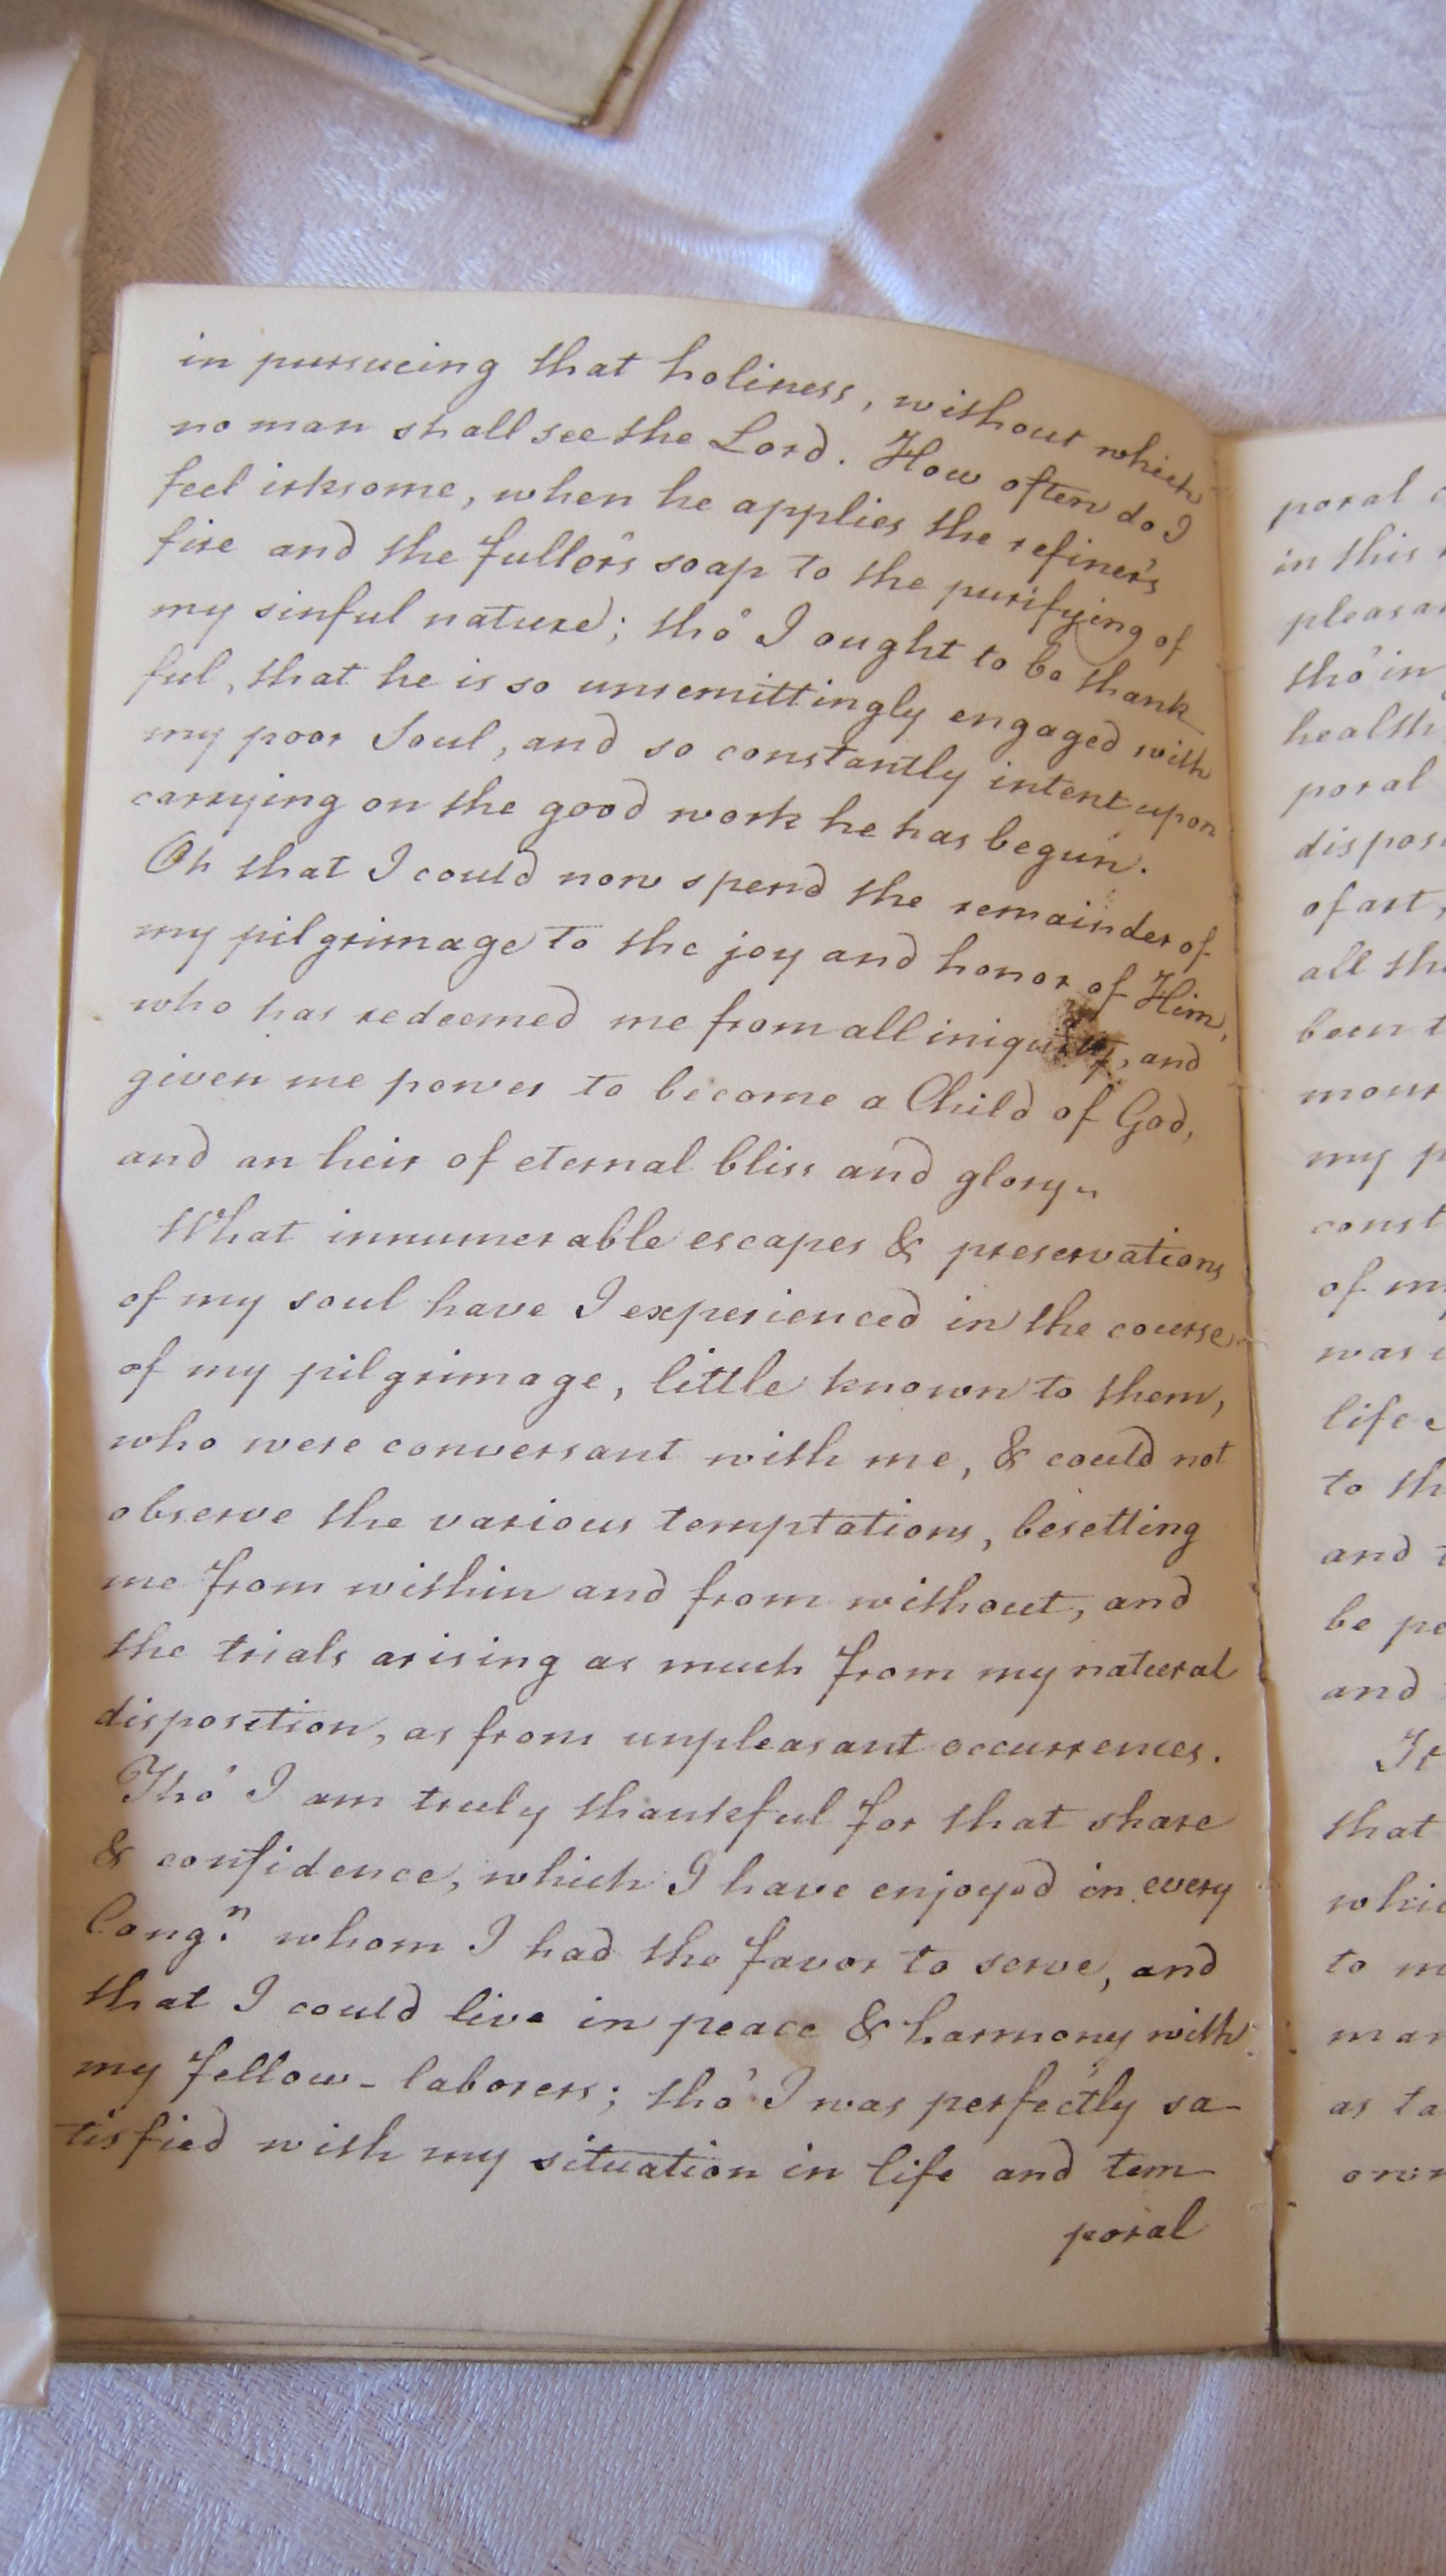 in pursueing that holiness, without which
no man shall see the Lord. How often do I
feel irksome, when he applies the refiner's
fire and the fuller's soap to the purifying of
my sinful nature; tho' I ought to be thank
ful, that he is so unremittingly engaged with
my poor Soul, and so constantly intent upon
carrying on the good work he has begun.
Oh that I could now spend the remainder of
my pilgrimage to the joy and honor of Him,
who has redeemed me from all iniquity, and
given me power to become a Child of God,
and an heir of eternal bliss and glory.
What innumerable escapes & preservations
of my soul have I experienced in the course
of my pilgrimage, little known to them,
who were conversant with me, & could not
observe the various temptations, besetting
me from within and from without, and
the trials arising as much from my natural
disposition, as from unpleasant occurrences.
Tho' I am truly thankful for that share
& confidence, which I have enjoyed in every
Cong.n whom I had the favor to serve, and
that I could live in peace & harmony with
my fellow-laborers; tho' I was perfectly sa-
tisfied with my situation in life and tem
poral
poral
in this
tho' in
health
poral
of art,
all
been
my
of
was
life
to
and
be
and
that
to
as